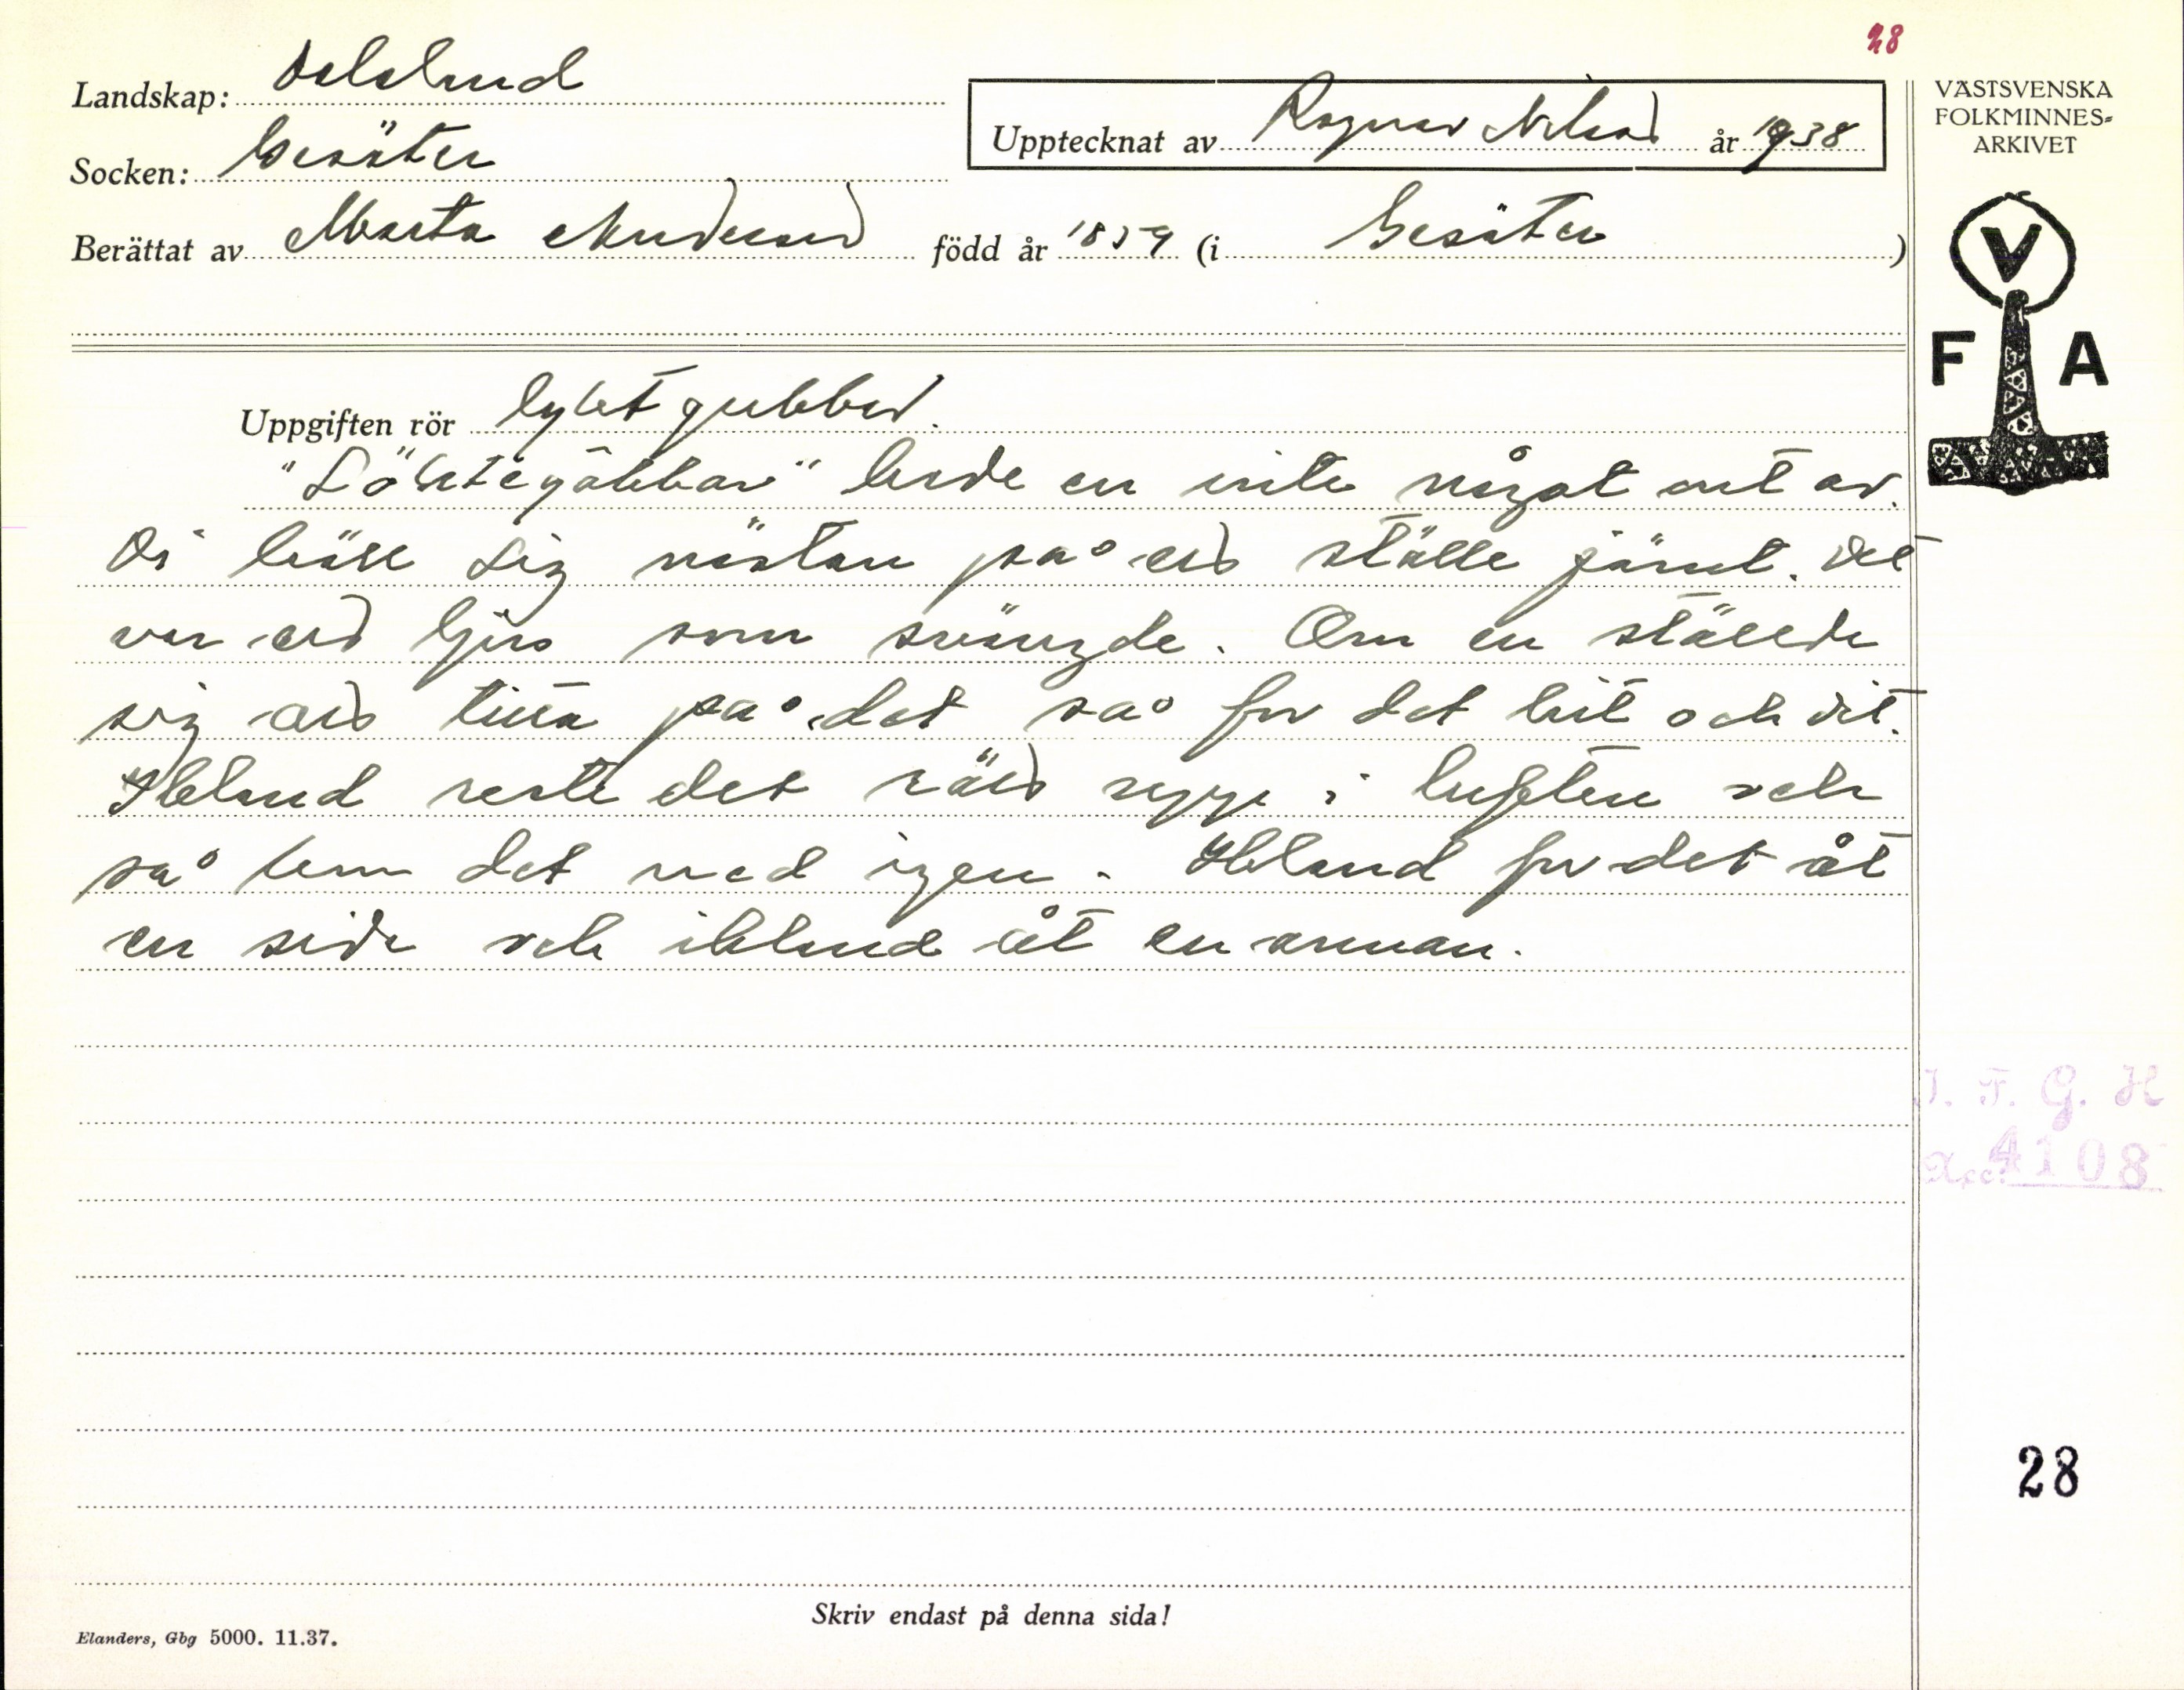 28
Landskap: Dalsland
Upptecknat av Ragnar Nilson år 1938
Socken: Gesäter
Berättat av Marta Anderson född år 1859 (i Gesäter)
VÄSTSVENSKA
FOLKMINNES=
ARKIVET
V
F A
Uppgiften rör lyktgubben.
"Löktegöbbar" hade en inte något ont av.
Di höll sig nästan på ett ställe jämt. Det
var ett ljus som svängde. Om en ställde
sig och titta på det så for det hit och dit.
Ibland reste det rätt upp i luften och
så kom det ned igen. Ibland for det åt
en sida och ibland åt en annan.
I. F. G. H
Acc. 4108
28
Skriv endast på denna sida!
Elanders, Gbg 5000. 11.37.